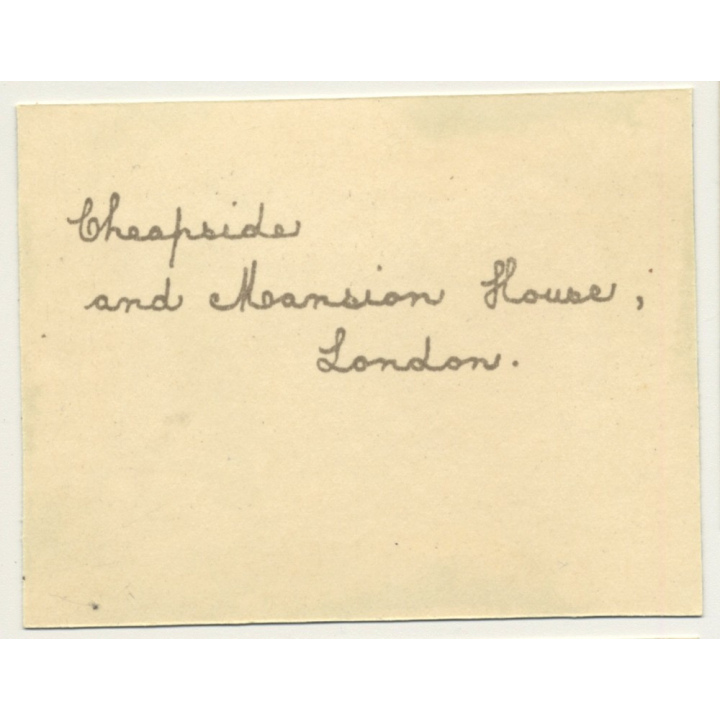 Cheapside
and Mansion House,
London.